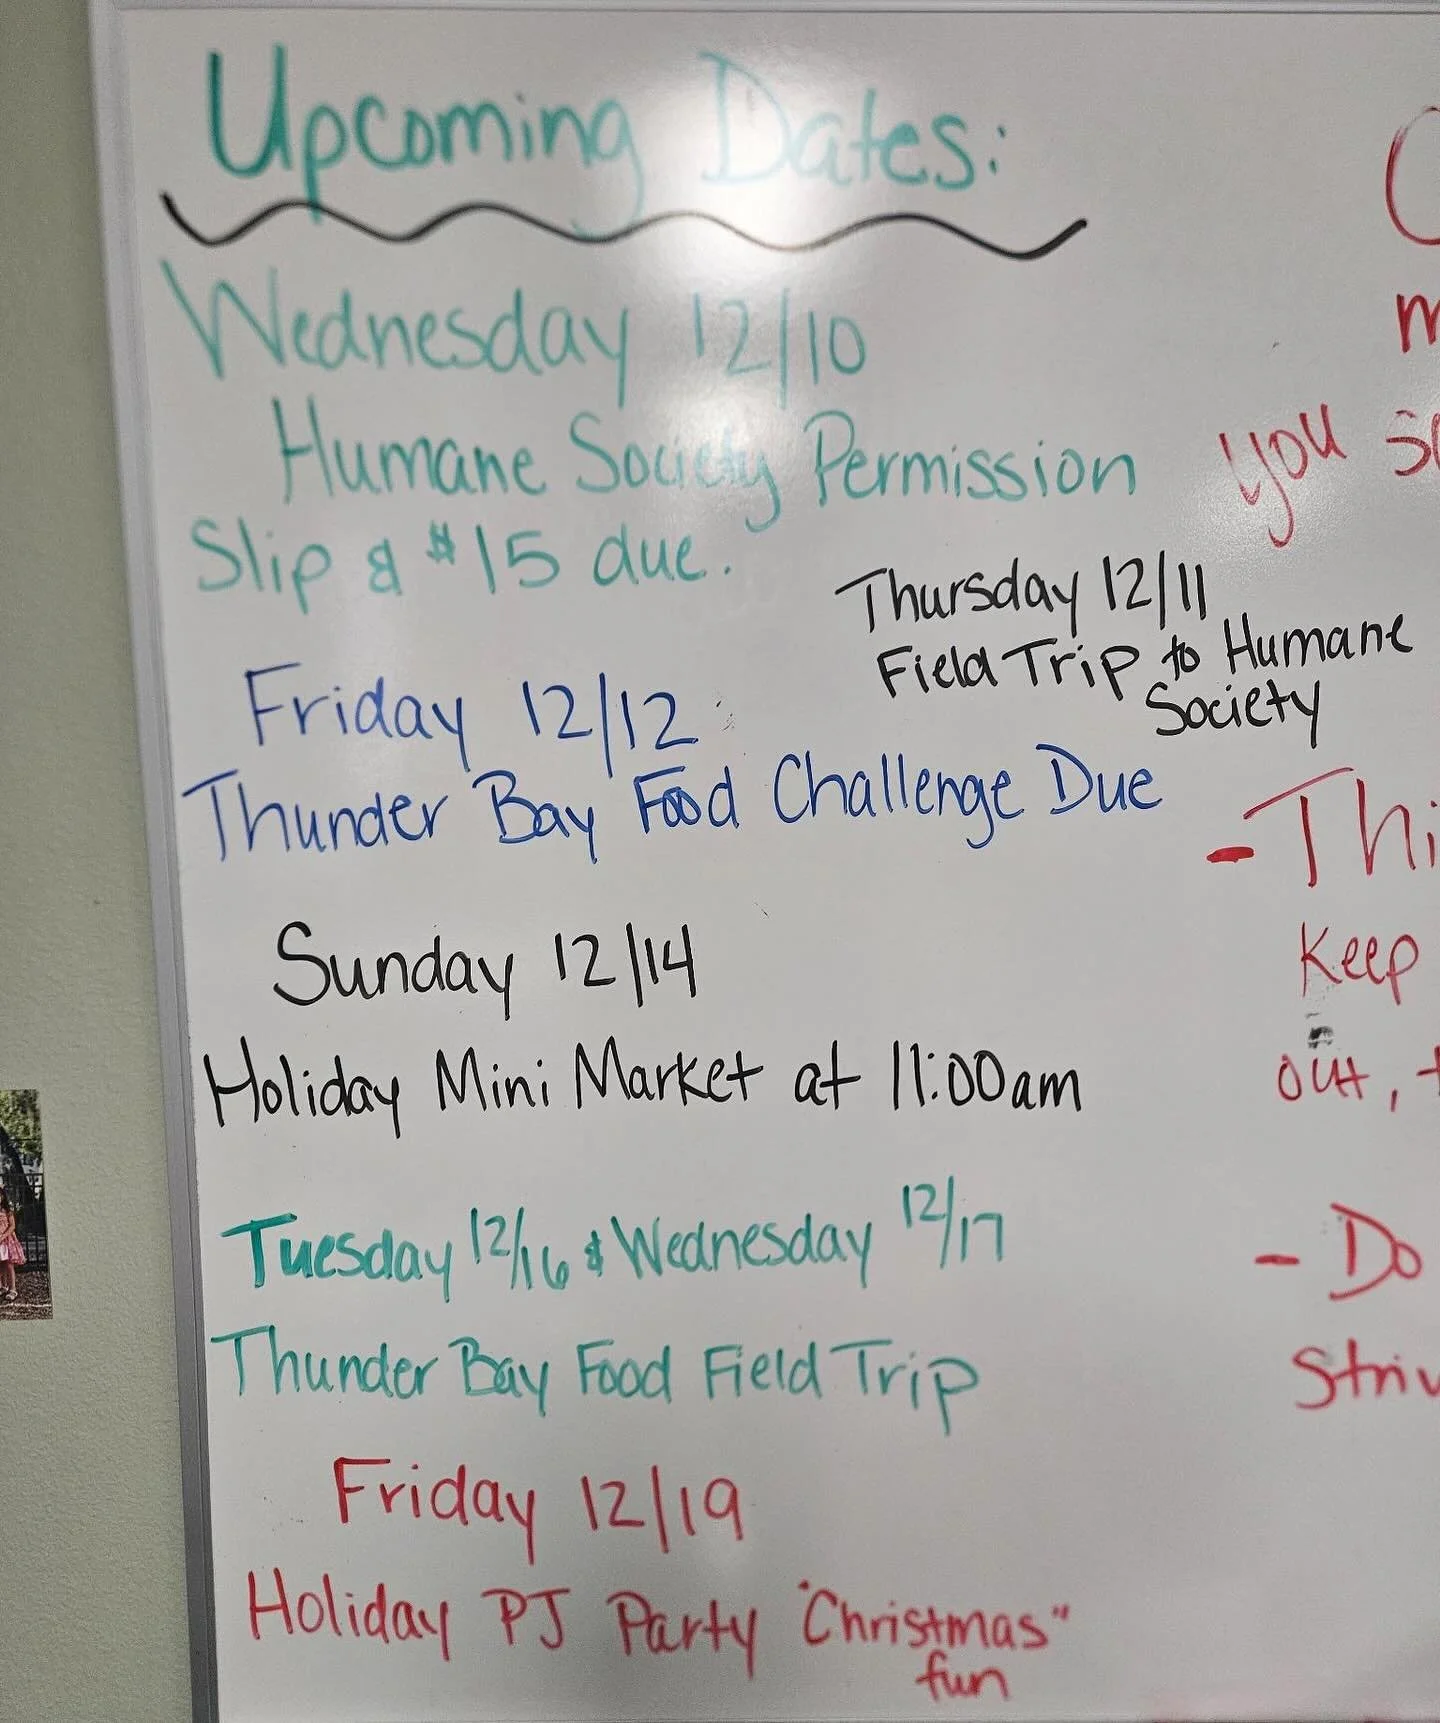 Upcoming Dates:
Wednesday 12/10
Humane Society Permission
Slip & $15 due.
Thursday 12/11
Field Trip to Humane
Society
Friday 12/12
Thunder Bay Food Challenge Due
Sunday 12/14
Holiday Mini Market at 11:00am
Tuesday 12/16 & Wednesday 12/17
Thunder Bay Food Field Trip
Friday 12/19
Holiday PJ Party "Christmas"
fun
you
Keep
out,
- Do